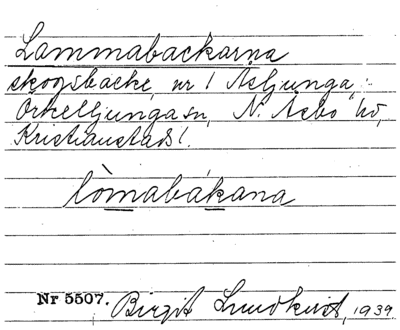 Lammabackarna
skogsbacke, nr 1 Åsljunga,
Örkelljunga sn, N. Åsbo hd,
Kristianstads l.
lòmabákana
Nr 5507. Birgit Lundkvist, 1939